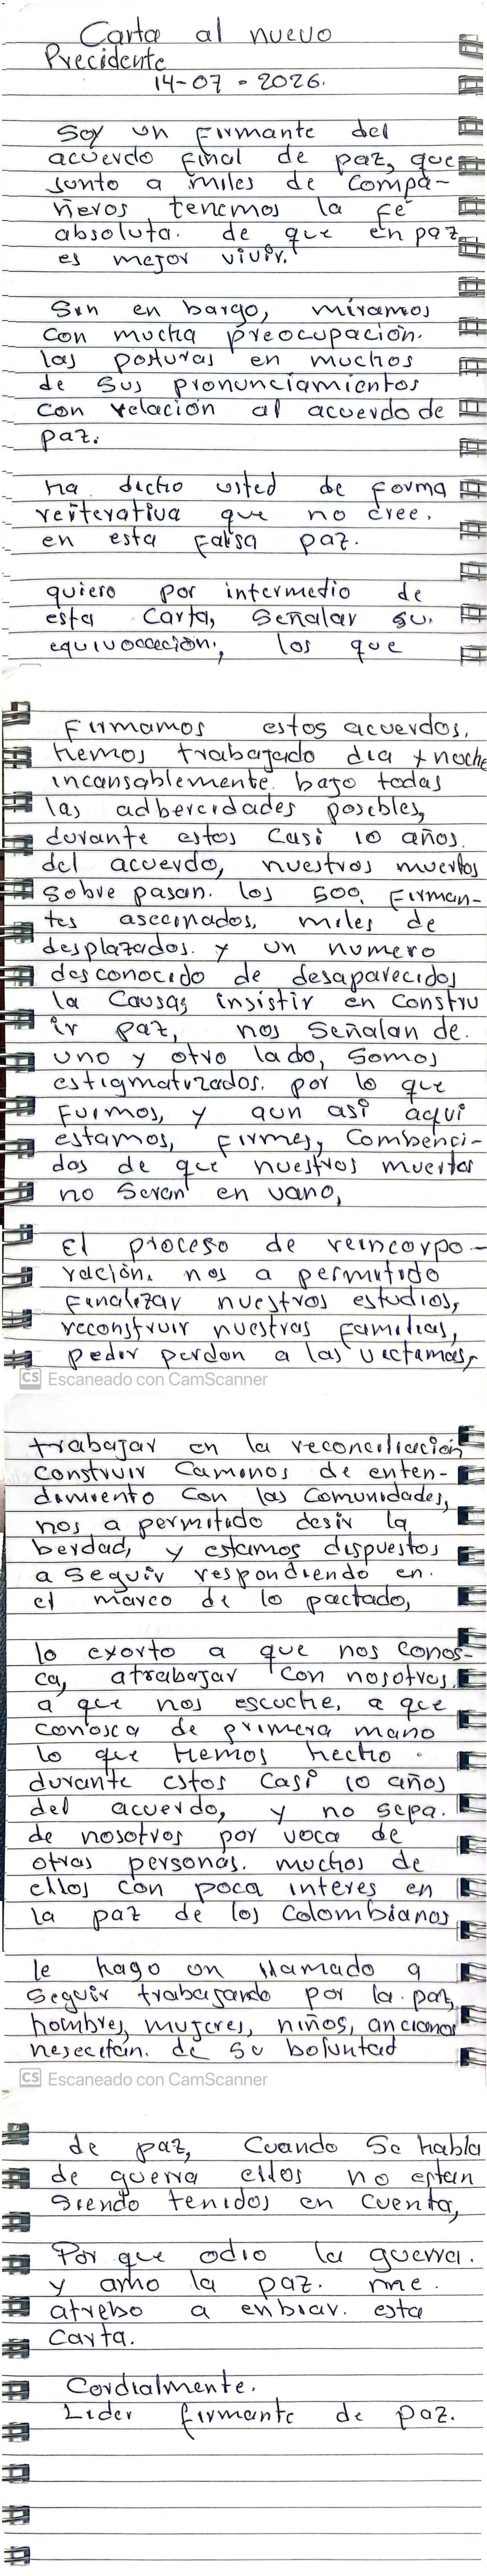 Carta al nuevo
Precidente
14-07-2026.
Soy un firmante del
acuerdo final de paz, que
junto a miles de compa-
ñeros tenemos la fe
absoluta. de que en paz
es mejor vivir.
Sin en bargo, miramos
con mucha preocupación.
las posturas en muchos
de sus pronunciamientos
con relación al acuerdo de
paz.
ha dicho usted de forma
reiterativa que no cree.
en esta falsa paz.
quiero por intermedio de
esta carta, señalar su.
equivocación, los que
firmamos estos acuerdos,
hemos trabajado dia y noche
incansablemente. bajo todas
las adbercidades posibles,
durante estos casi 10 años.
del acuerdo, nuestros muertos
sobre pasan. los 500, firman-
tes asecinados, miles de
desplazados. y un numero
desconocido de desaparecidos
la causa, insistir en constru
ir paz, nos señalan de.
uno y otro lado, somos
estigmatizados. por lo que
fuimos, y aun asi aqui
estamos, firmes, combenci-
dos de que nuestros muertos
no seran en vano,
El proceso de reincorpo-
ración. nos a permitido
finalizar nuestros estudios,
reconstruir nuestras familias,
pedir perdon a las victimas,
Escaneado con CamScanner
trabajar en la reconciliación
construir caminos de enten-
dimiento con las comunidades,
nos a permitido desir la
berdad, y estamos dispuestos
a seguir respondiendo en.
el marco de lo pactado,
lo exorto a que nos conos-
ca, atrabajar con nosotros,
a que nos escuche, a que
conosca de primera mano
lo que hemos hecho.
durante estos casi 10 años
del acuerdo, y no sepa.
de nosotros por voca de
otras personas. muchos de
ellos con poca interes en
la paz de los colombianos
le hago un llamado a
seguir trabajando por la paz,
hombres, mujeres, niños, ancianos
nesecitan. de su boluntad
Escaneado con CamScanner
de paz, cuando se habla
de guerra ellos no estan
siendo tenidos en cuenta,
Por que odio la guerra.
y amo la paz. me.
atrebo a enbiar. esta
carta.
Cordialmente.
Lider firmante de paz.